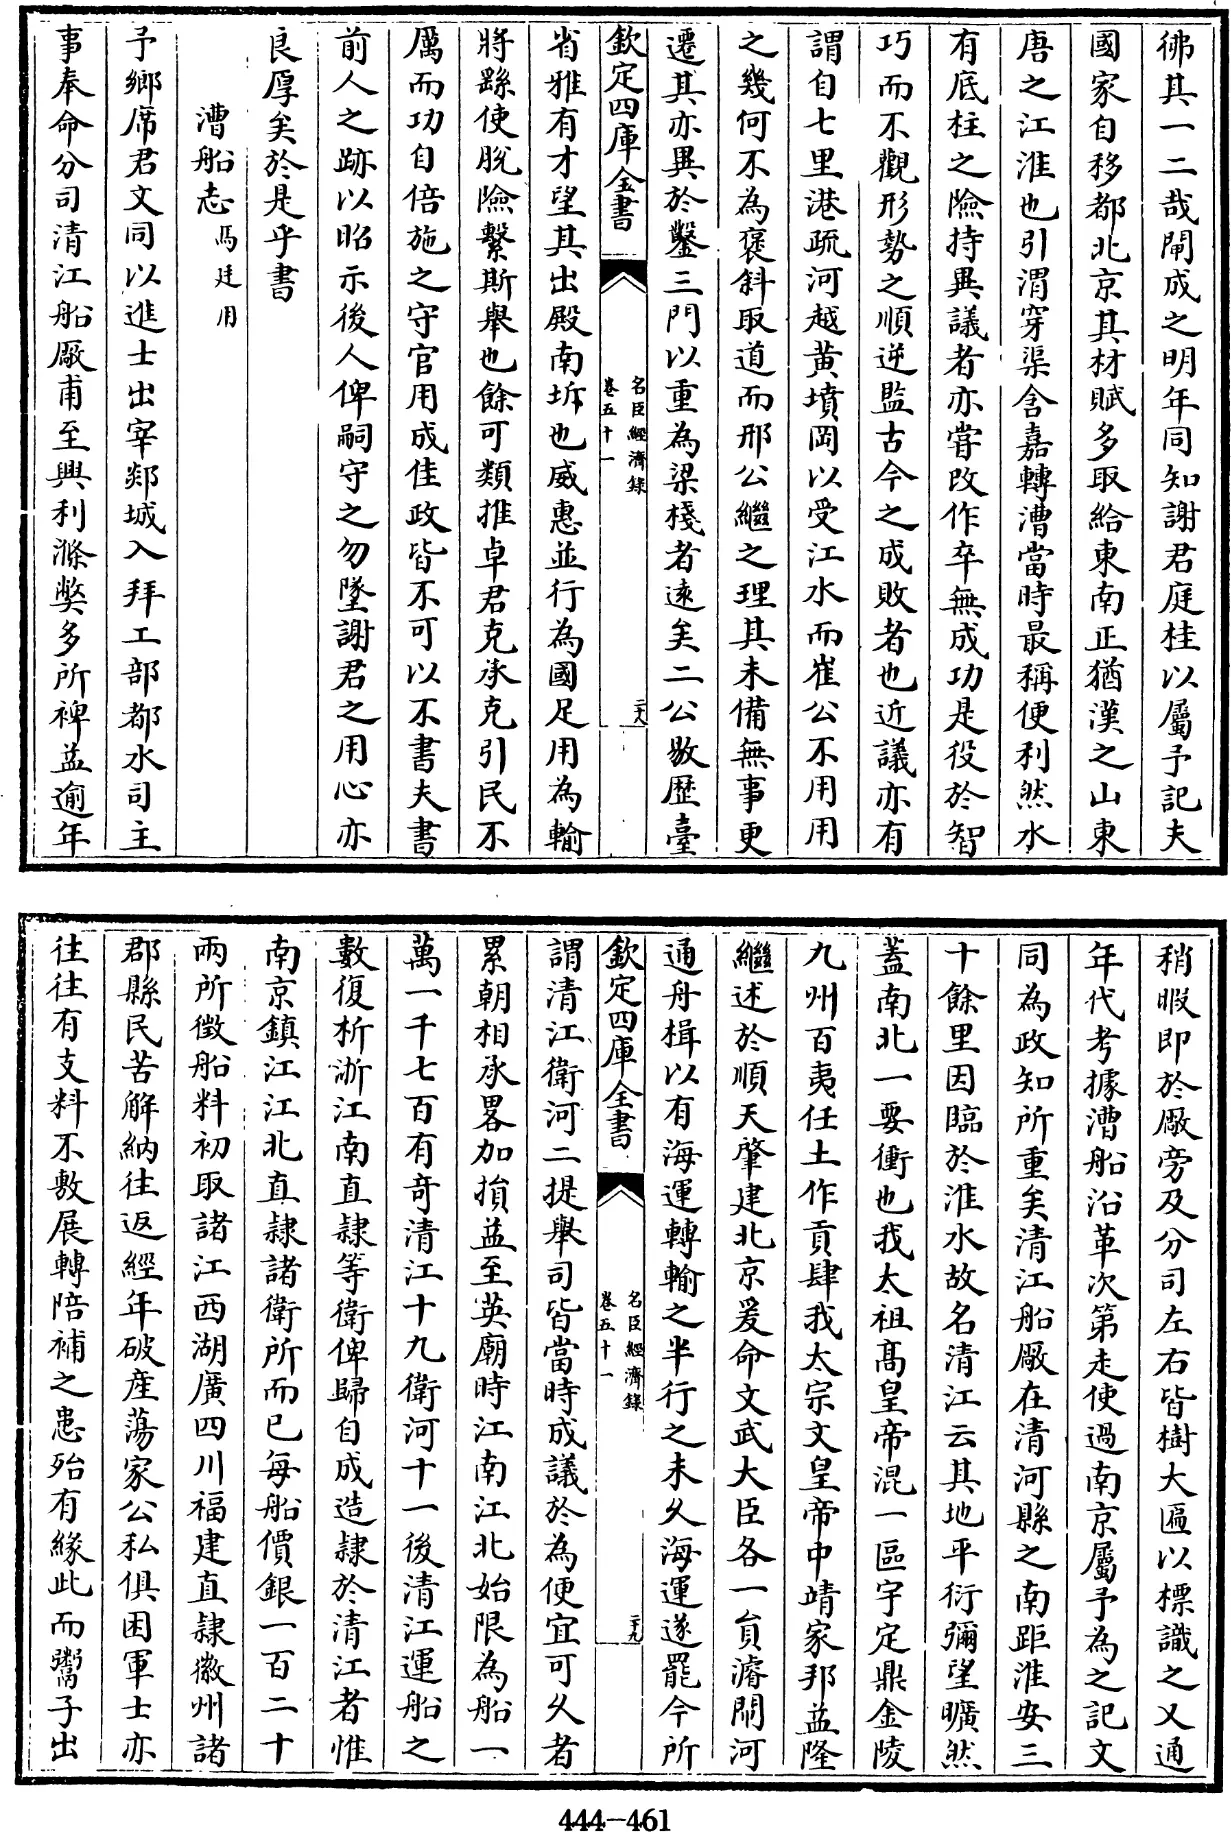 彿其一二哉閘成之明年同知謝君庭桂以屬予記夫
國家自移都北京其材賦多取給東南正猶漢之山東
唐之江淮也引渭穿渠含嘉轉漕當時最稱便利然水
有底柱之險持異議者亦嘗改作卒無成功是役於智
巧而不觀形勢之順逆監古今之成敗者也近議亦有
謂自七里港疏河越黄墳岡以受江水而崔公不用用
之幾何不為褒斜取道而邢公繼之理其未備無事更
遷其亦異於鑿三門以重為梁棧者遠矣二公敭歴臺
欽定四庫全書
名臣經濟録
卷五十一
二十八
省雅有才望其出殿南圻也威惠並行為國足用為輸
將繇使脫險繫斯舉也餘可類推卓君克承克引民不
厲而功自倍施之守官用成佳政皆不可以不書夫書
前人之跡以昭示後人俾嗣守之勿墜謝君之用心亦
良厚矣於是乎書
漕船志 馬廷用
予鄉席君文同以進士出宰郯城入拜工部都水司主
事奉命分司清江船厰甫至興利滌獘多所裨益逾年
稍暇即於厰旁及分司左右皆樹大匾以標識之又通
年代考據漕船沿革次第走使過南京屬予為之記文
同為政知所重矣清江船厰在清河縣之南距淮安三
十餘里因臨於淮水故名清江云其地平衍彌望曠然
蓋南北一要衝也我太祖高皇帝混一區宇定鼎金陵
九州百夷任土作貢肆我太宗文皇帝中靖家邦益隆
繼述於順天肇建北京爰命文武大臣各一員濬閘河
通舟楫以有海運轉輸之半行之未久海運遂罷今所
欽定四庫全書
名臣經濟録
卷五十一
二十九
謂清江衛河二提舉司皆當時成議於為便宜可久者
累朝相承畧加損益至英廟時江南江北始限為船一
萬一千七百有奇清江十九衛河十一後清江運船之
數復析浙江南直隷等衛俾歸自成造隷於清江者惟
南京鎮江江北直隷諸衛所而已每船價銀一百二十
兩所徴船料初取諸江西湖廣四川福建直隷徽州諸
郡縣民苦解納往返經年破産蕩家公私俱困軍士亦
往往有支料不敷展轉陪補之患殆有緣此而鬻子出
444-461